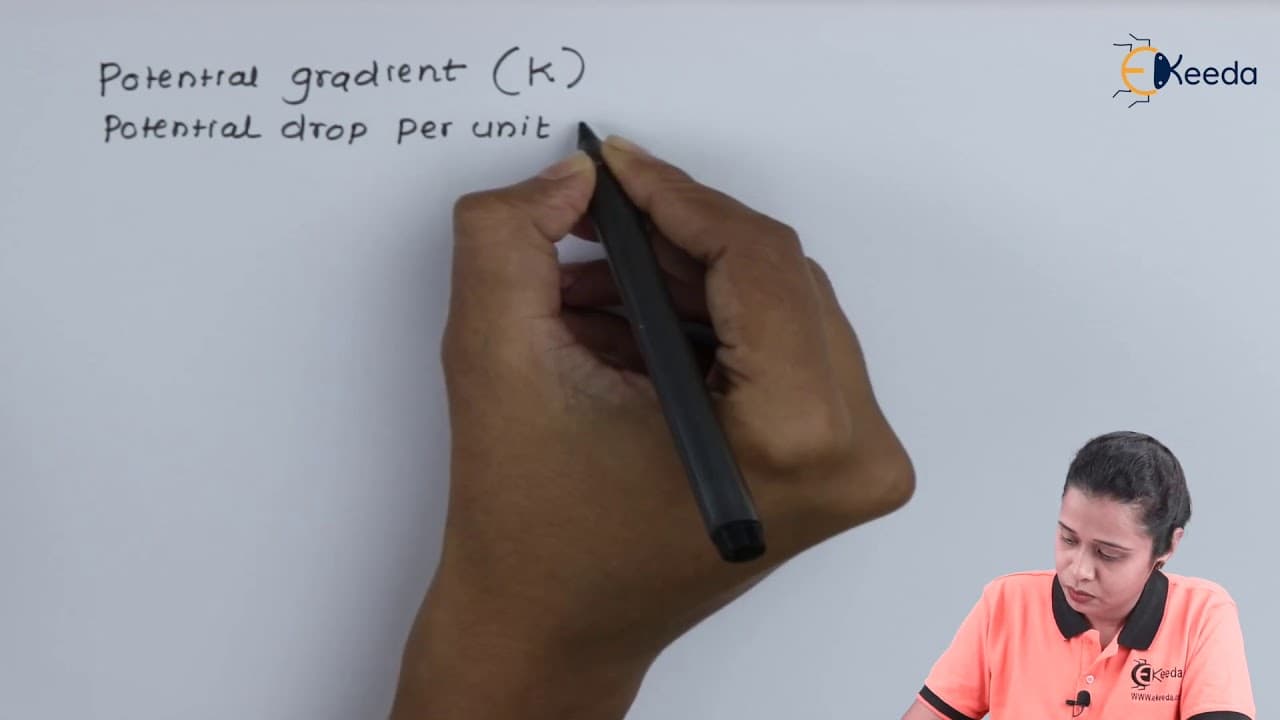 Potential gradient (K)
Potential drop per unit
EKeeda
EKeeda